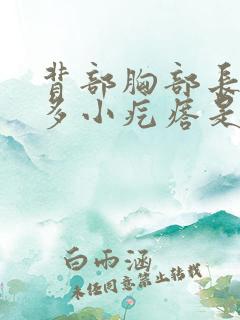 背部胸部長
多小疙瘩是
白雨涵
未任同意禁止转载